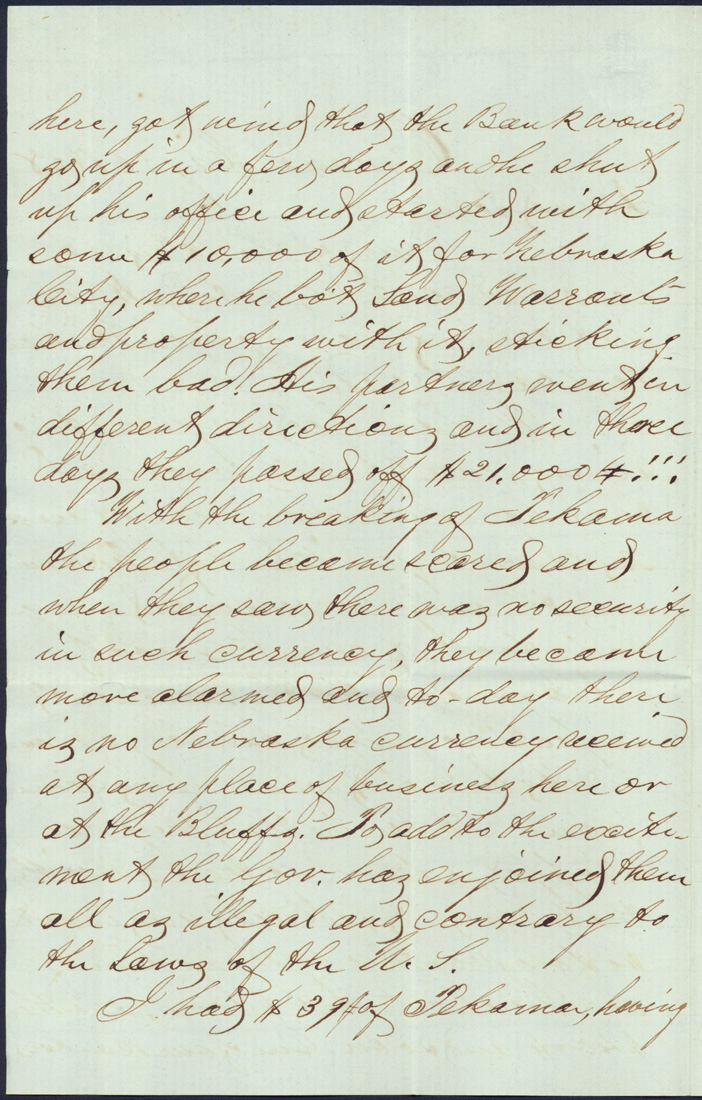 here, got wind that the Bank would
go up in a few days and he shut
up his office and started with
some $10,000 of it for Nebraska
City, where he bot Land Warrants
and property with it, sticking
them bad! His partners went in
different directions and in three
days they passed off $21,000#!!!
With the breaking of Tekama
the people became scared and
when they saw there was no security
in such currency, they became
more alarmed and to-day there
is no Nebraska currency received
at any place of business here or
at the Bluffs. To add to the excite-
ment the Gov. has enjoined them
all as illegal and contrary to
the Laws of the U. S.
I had $39# of Tekama, having